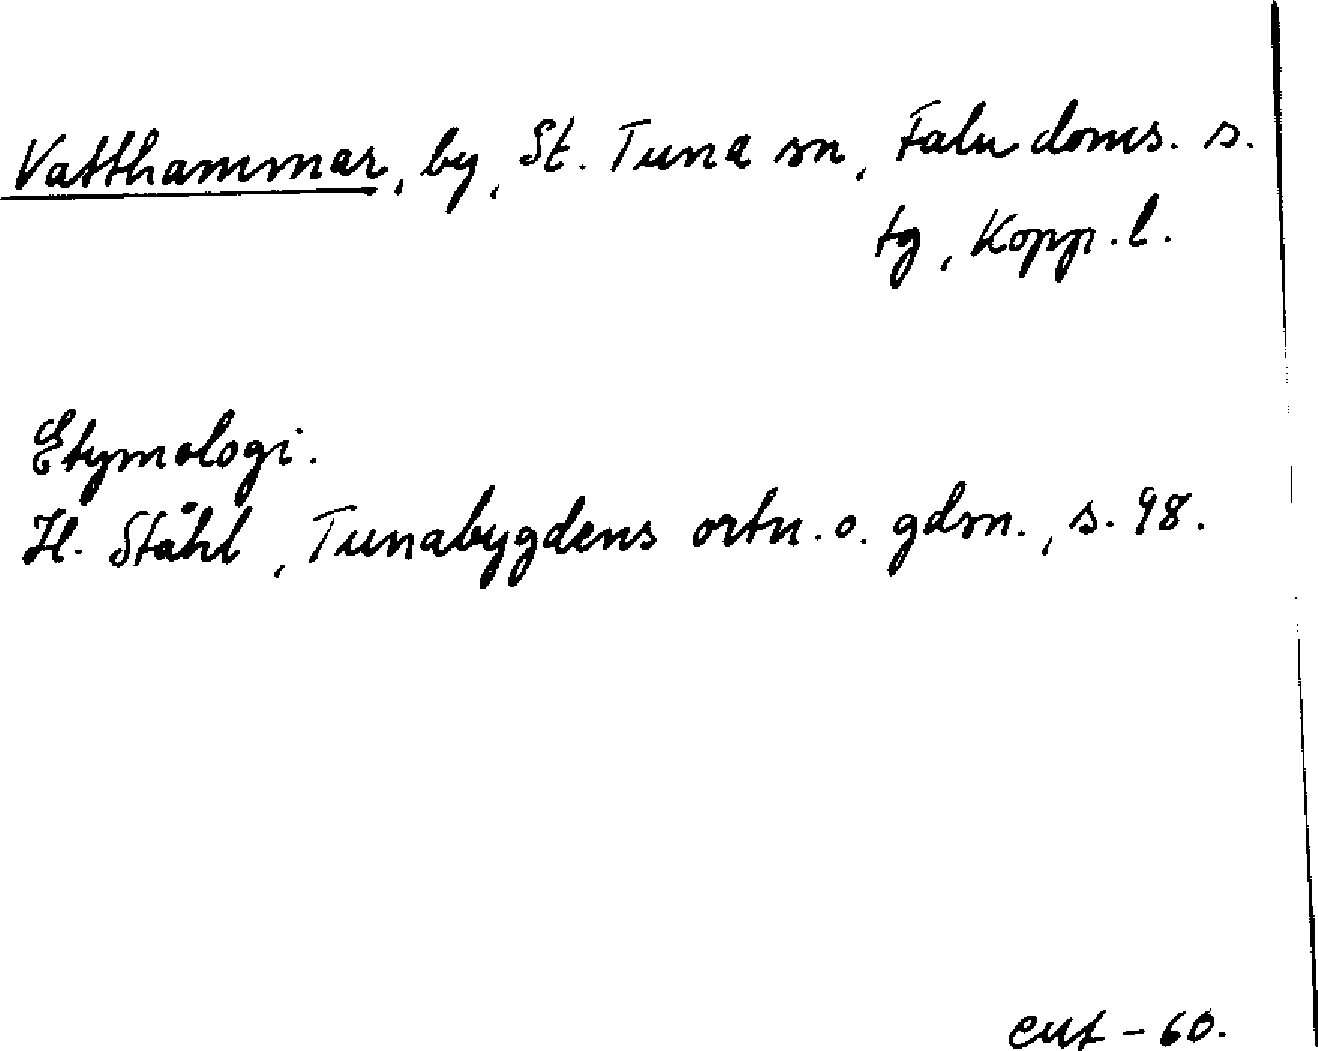 Vatthammar, by, St. Tuna sn, Falu doms. s.
tg, Kopp. l.
Etymologi.
H. Ståhl, Tunabygdens ortn. o. gdsn., s. 98.
- 60.